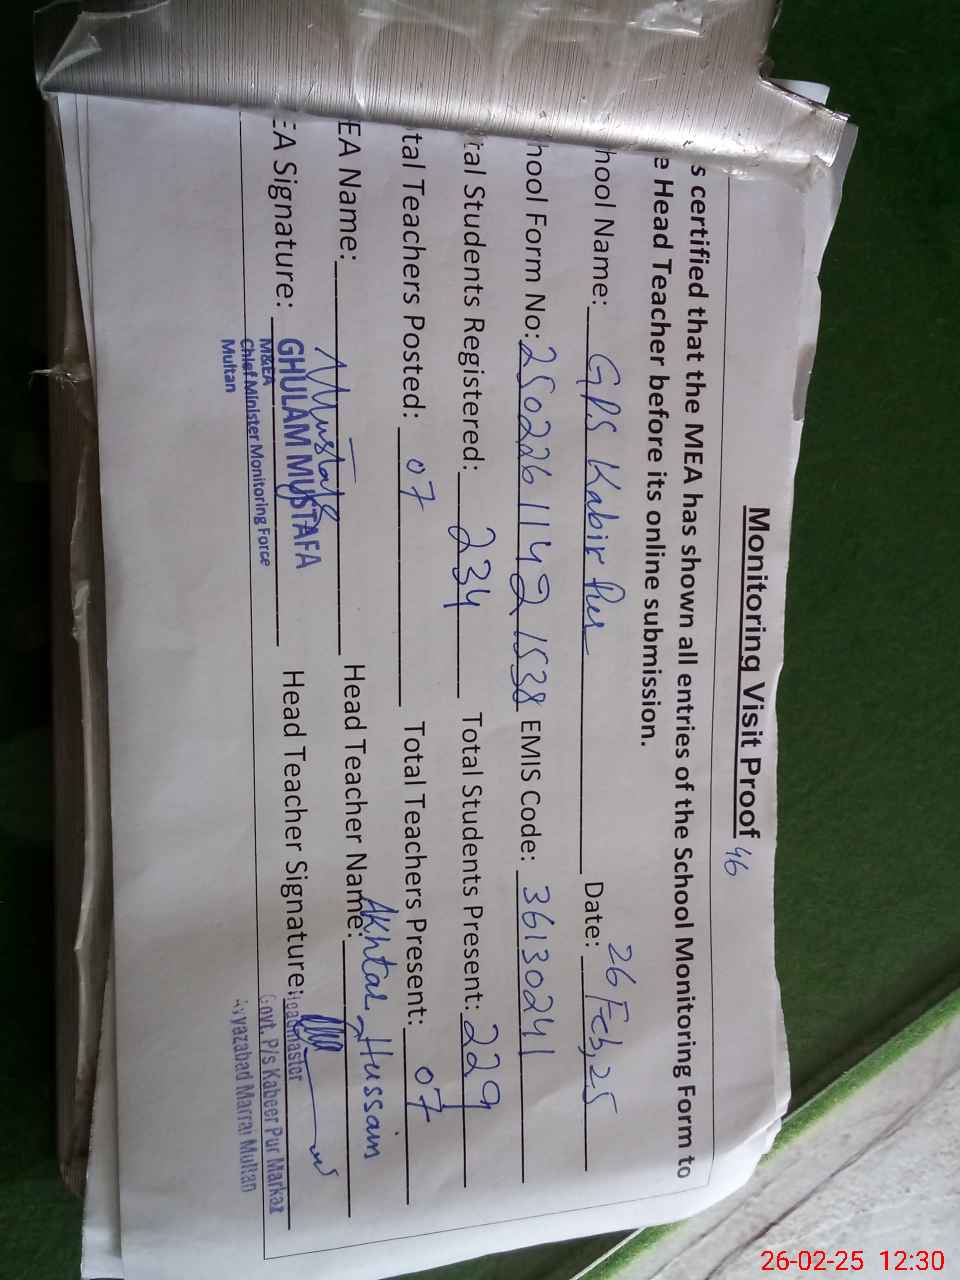 Monitoring Visit Proof 46
s certified that the MEA has shown all entries of the School Monitoring Form to
e Head Teacher before its online submission.
hool Name: GPS Kabir Pur Date: 26 Feb, 25
hool Form No: 25022611421538 EMIS Code: 36130241
tal Students Registered: 234 Total Students Present: 229
tal Teachers Posted: 07 Total Teachers Present: 07
EA Name: Mustafa Head Teacher Name: Akhtar Hussain
EA Signature: GHULAM MUSTAFA Head Teacher Signature: Headmaster
M&EA
Chief Minister Monitoring Force
Multan
Govt. P/s Kabeer Pur Markaz
Ayyazabad Marral Multan
26-02-25 12:30